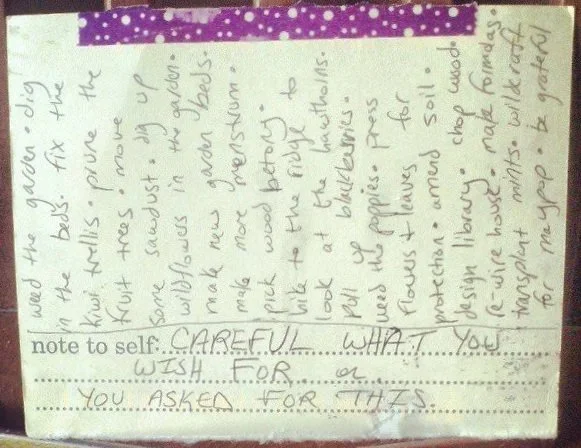 weed the garden • dig
in the beds. fix the
kiwi trellis • prune the
fruit trees • move
some sawdust • dig up
wildflowers in the garden.
make new garden beds.
make more menstrum.
pick wood betony.
hike to the ridge to
look at the hawthorns.
pull up blackberries.
weed the poppies. press
flowers + leaves for
protection • amend soil •
design library. chop wood.
re-wire house • make formulas.
transplant mints. wildcraft
for maypop • be grateful
note to self: CAREFUL WHAT YOU
WISH FOR. or.
YOU ASKED FOR THIS.